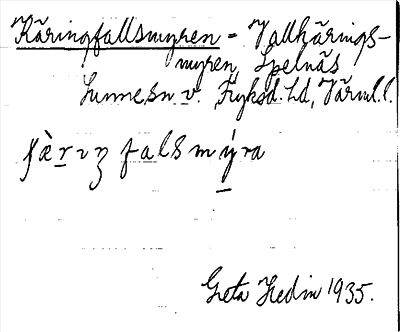 Käringfallsmyren = Vallkärings-
myren, Spelnäs
Sunne sn v. Fryksd. hd, Värml. l.
fallsmýra
Greta Hedin 1935.